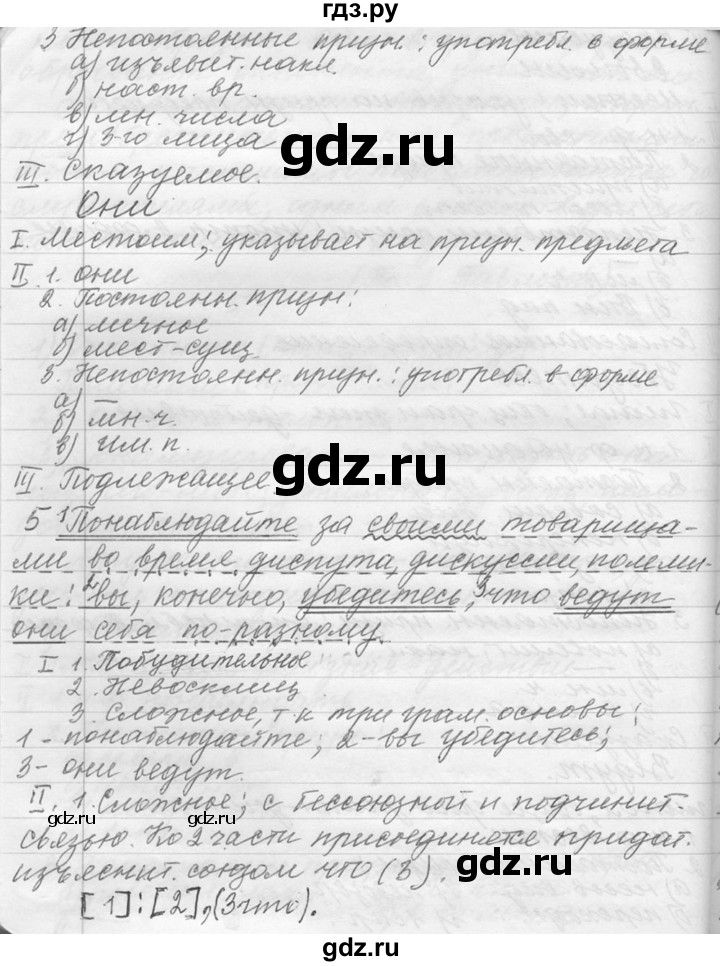 гдз.ру
3 Непостоянные призн.: употребл. в форме
а) изъявит. накл.
б) наст. вр.
в) мн. числа
г) 3-го лица
gdz.ru
III. Сказуемое.
Они
I. Местоим.; указывает на призн. предмета
II. 1. они
2. Постоянн. призн:
а) личное
б) мест-сущ
3. Непостоянн. призн.: употребл. в форме
а)
б) мн.ч.
в) им. п.
gdz.ru
III. Подлежащее.
5 ¹Понаблюдайте за своими товарища-
ми во время диспута, дискуссии, полеми-
ки: ²вы, конечно, убедитесь, ³что ведут
они себя по-разному.
I 1. Побудительное
2. Невосклиц.
3. Сложное, т к три грам. основы:
1 - понаблюдайте; 2-вы убедитесь;
3- они ведут.
gdz.ru
gdz.ru
II. 1. Сложное; с бессоюзной и подчинит.
связью. Ко 2 части присоединяетс придат.
изъяснит. союзом что (3).
[1]:[2],(3что).
gdz.ru
gdz.ru
gdz.ru